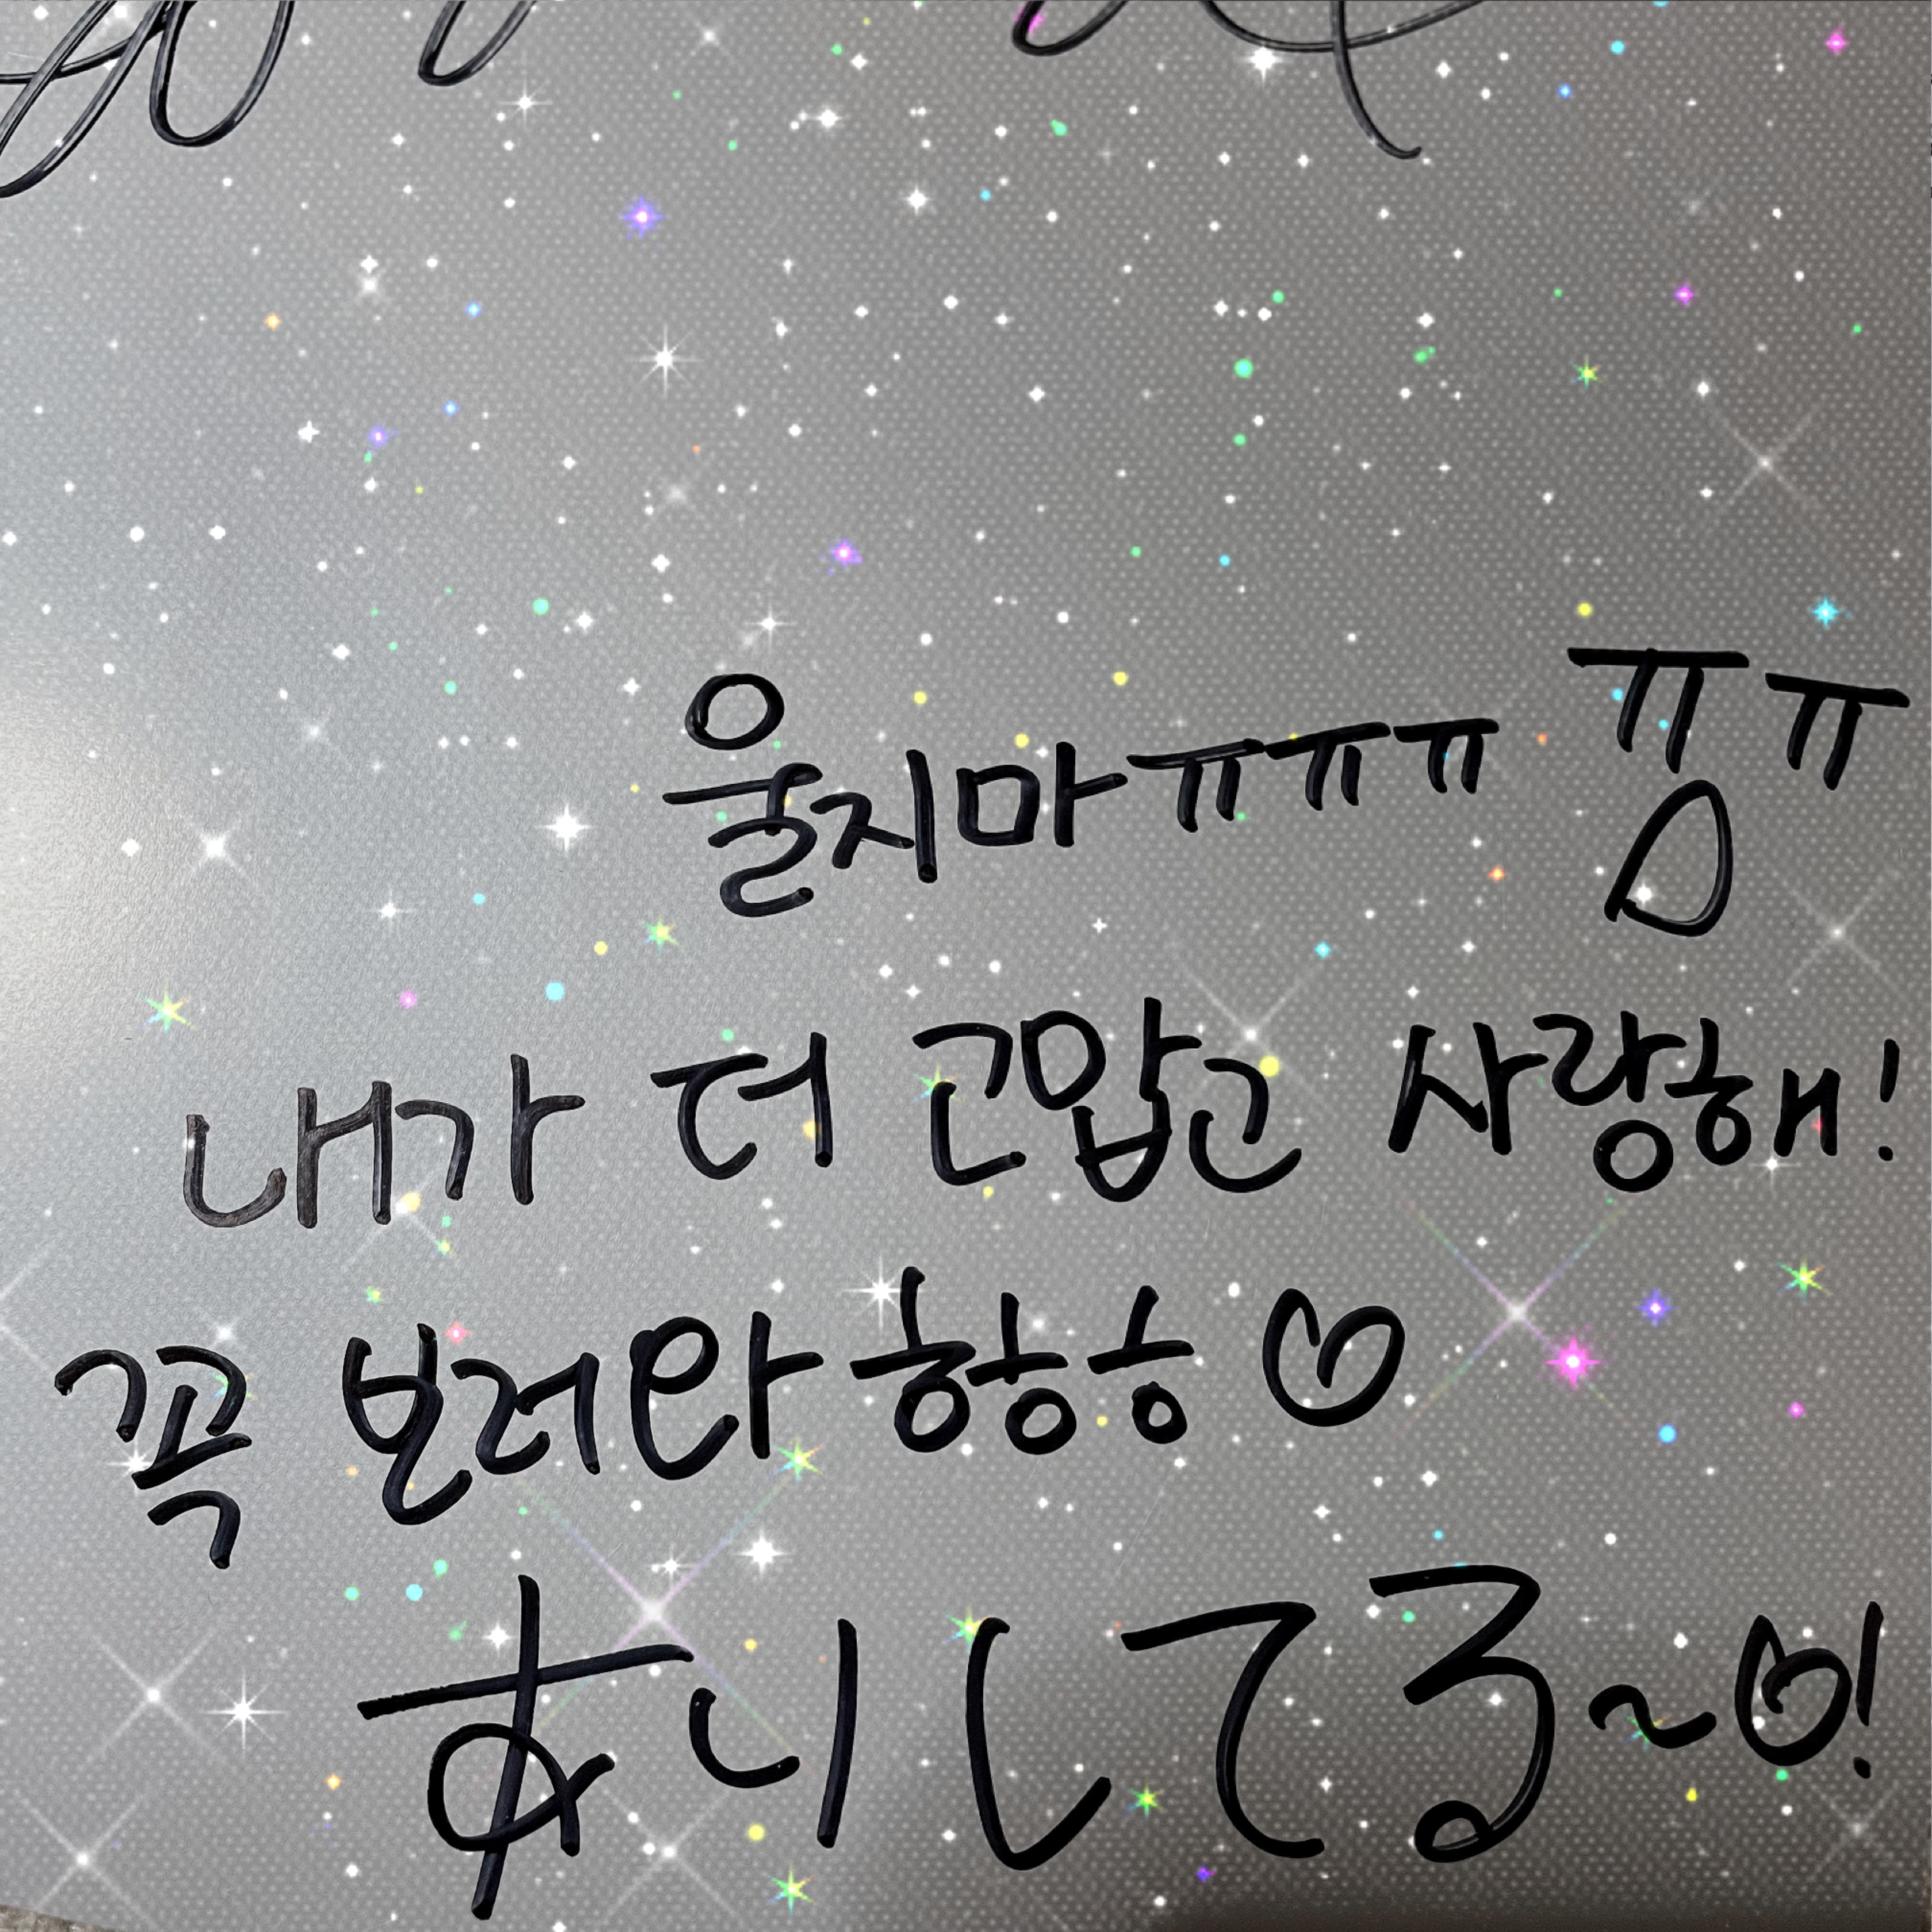 울지마ㅠㅠㅠ ㅠㅁㅠ
내가 더 고맙고 사랑해!
꼭 보러와 항상ㅎ♡
あいしてる~♡!